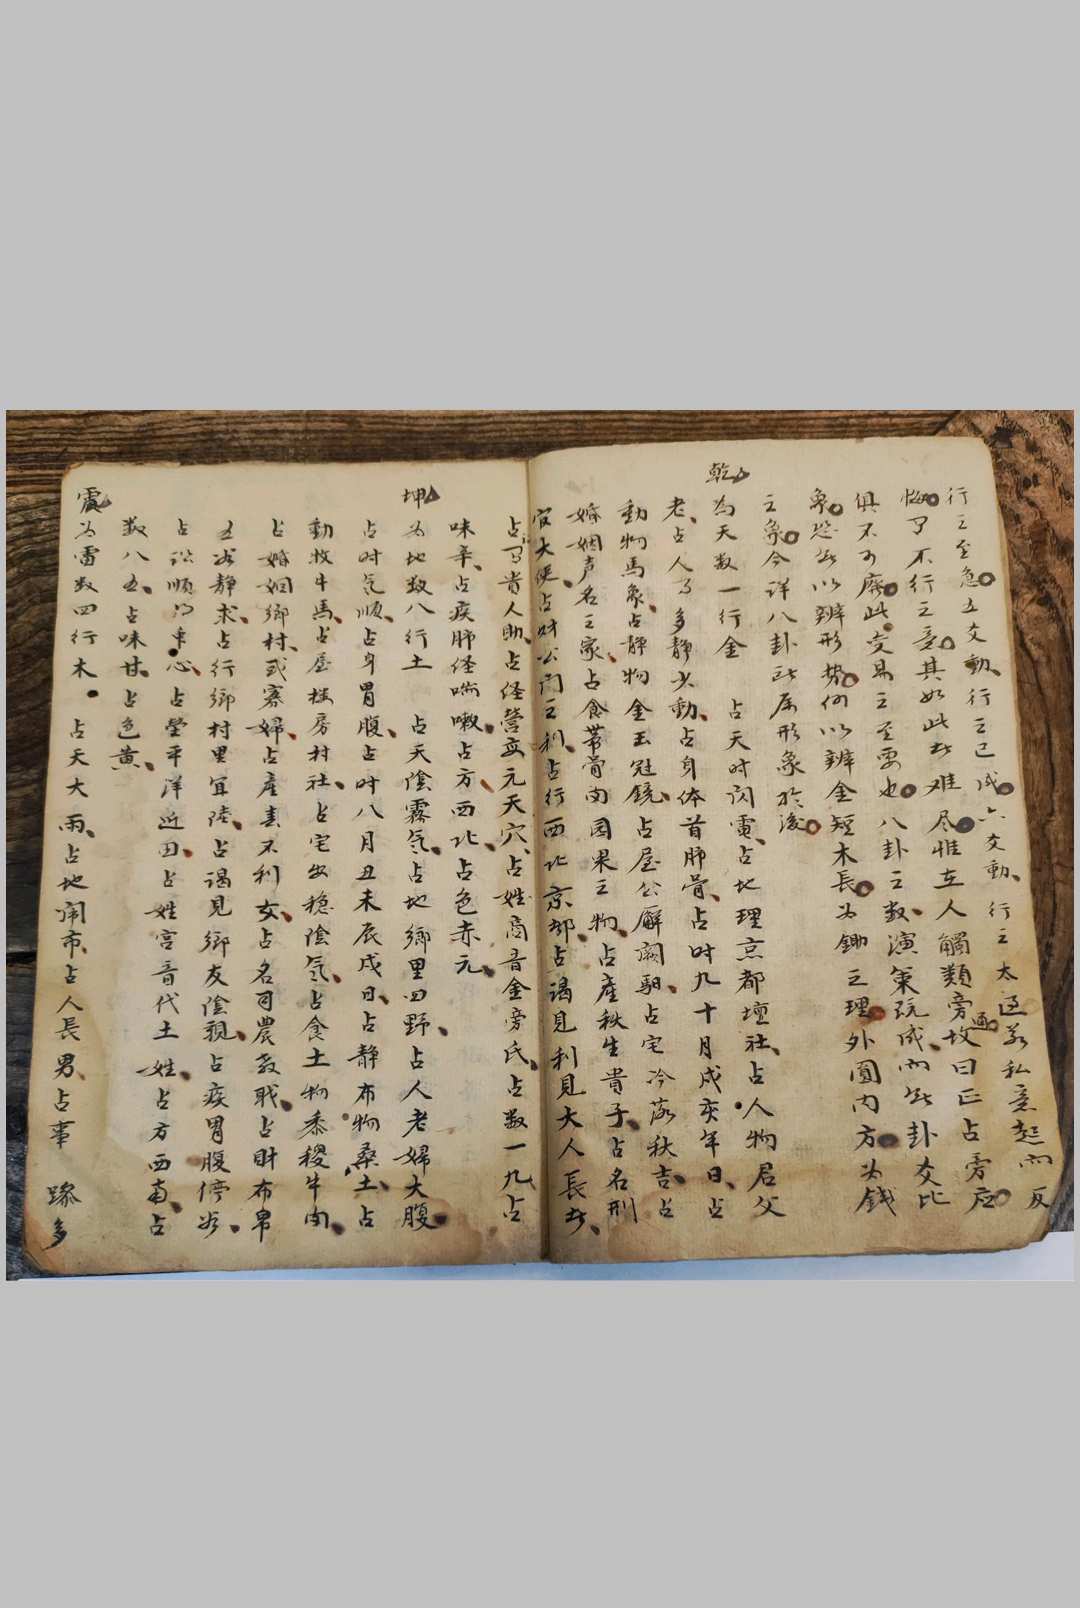 行之至急五爻動行之已成六爻動行之太過若私意起而反
悔了不行之吝其如此者难尽惟在人觸類旁坎曰正占旁应
俱不可廃此交易之至要也八卦之数演策既成而此卦爻比
象迯此以辨形势何以辨金短木長为鋤之理外圓内方为錢
之象今详八卦所属形象於後
乾为天数一行金 占天时闪電占地理京都壇社占人物君父
老占人多静少動占身体首肺骨占时九十月戍亥年日占
動物馬象占静物金玉冠鏡占屋公廨闕驲占宅冷落秋吉占
婚姻声名之家占食帶骨肉园果之物占産秋生貴子占名刑
官大使占财公门之利占行西北京都占谒見利見大人長者
占了貴人助占径營亥元天穴占姓商音金旁氏占数一九占
味辛占疾肺径喘嗽占方西北占色赤元
坤为地数八行土 占天陰霧氣占地鄉里田野占人老婦大腹
占时氣順占身胃腹占时八月丑未辰戍日占静布物桑土占
動牧牛馬占屋楼房村社占宅安穏陰氣占食土物黍稷牛肉
占婚姻鄉村或寡婦占産春不利女占名司農教職占财布帛
五谷静求占行鄉村里宜陸占谒見鄉友陰親占疾胃腹停谷
占訟順得中心占塋平洋近田占姓宫音代土姓占方西南占
数八五占味甘占色黄
震为雷数四行木 占天大雨占地闹市占人長男占事 躁多